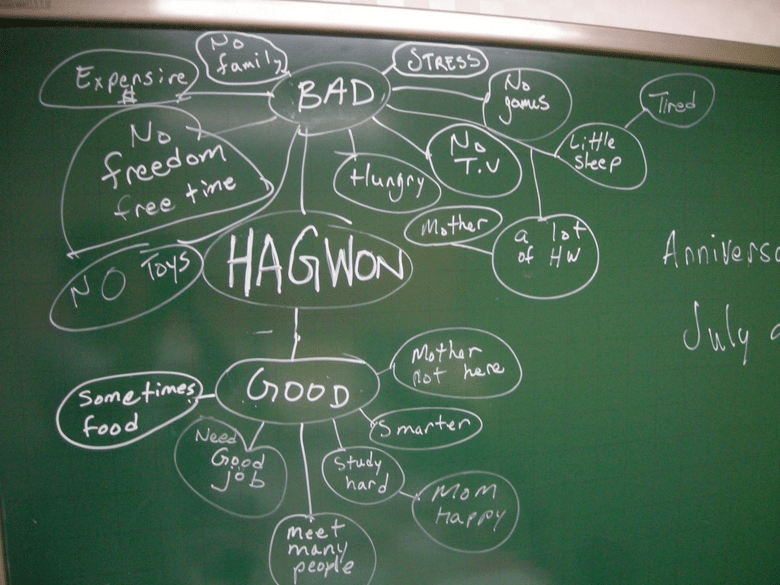 No
family
STRESS
Expensive
$
BAD
No
games
Tired
No
freedom
free time
Hungry
No
T.V
Little
sleep
Mother
a lot
of HW
NO TOYS
HAGWON
Anniversa
July
Mother
not here
GOOD
Sometimes
food
Smarter
Need
Good
job
Study
hard
Mom
Happy
meet
many
people